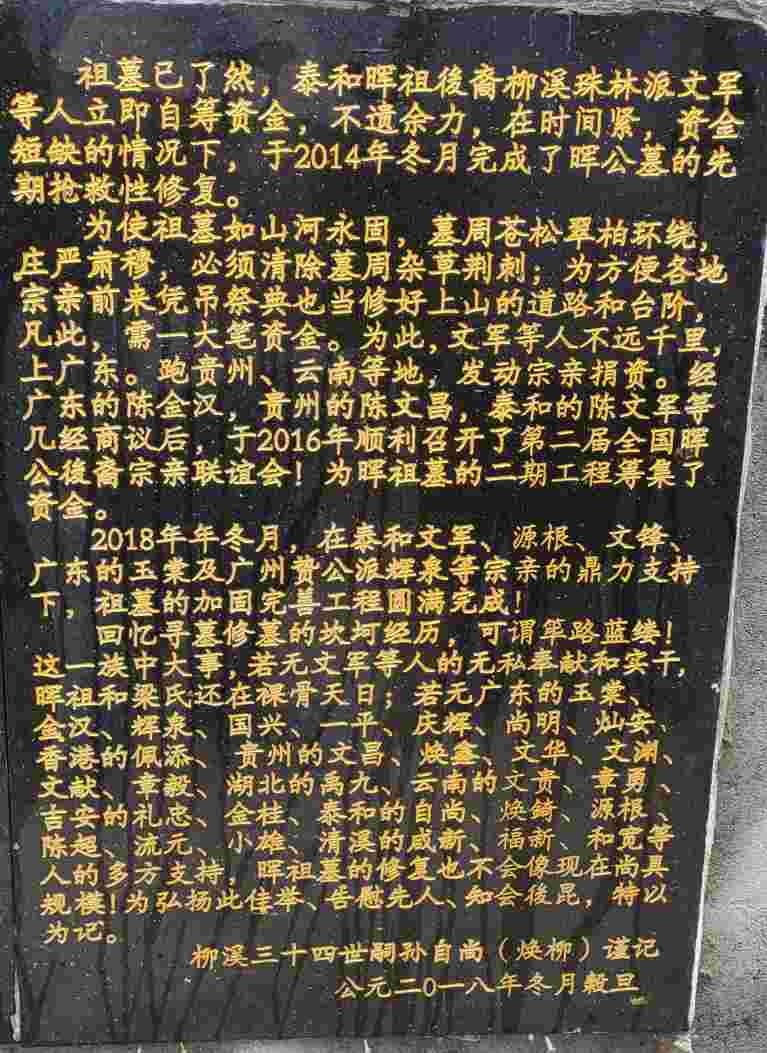 祖墓已了然，泰和晖祖後裔柳溪珠林派文军
等人立即自筹资金，不遗余力，在时间紧，资金
短缺的情况下，于2014年冬月完成了晖公墓的先
期抢救性修复。
为使祖墓如山河永固，墓周苍松翠柏环绕，
庄严肃穆，必须清除墓周杂草荆刺；为方便各地
宗亲前来凭吊祭典也当修好上山的道路和台阶，
凡此，需一大笔资金。为此，文军等人不远千里，
上广东。跑贵州、云南等地，发动宗亲捐资。经
广东的陈金汉，贵州的陈文昌，泰和的陈文军等
几经商议后，于2016年顺利召开了第二届全国晖
公後裔宗亲联谊会！为晖祖墓的二期工程筹集了
资金。
2018年年冬月，在泰和文军、源根、文锋、
广东的玉棠及广州赞公派辉泉等宗亲的鼎力支持
下，祖墓的加固完善工程圆满完成！
回忆寻墓修墓的坎坷经历，可谓筚路蓝缕！
这一族中大事，若无文军等人的无私奉献和实干，
晖祖和梁氏还在裸骨天日；若无广东的玉棠、
金汉、辉泉、国兴、一平、庆辉、尚明、灿安、
香港的佩添、贵州的文昌、焕鑫、文华、文渊、
文献、章毅、湖北的禹九、云南的文贵、章勇、
吉安的礼忠、金桂、泰和的自尚、焕錡、源根、
陈超、流元、小雄、清溪的咸新、福新、和宽等
人的多方支持，晖祖墓的修复也不会像现在尚具
规模！为弘扬此佳举、告慰先人、知会後昆，特以
为记。
柳溪三十四世嗣孙自尚（焕柳）谨记
公元二0一八年冬月榖旦